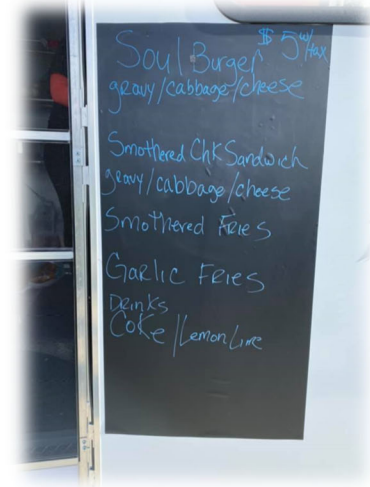 Soul Burger $5 w/tax
gravy/cabbage/cheese
Smothered Chk Sandwich
gravy/cabbage/cheese
Smothered FRies
GaRlic FRies
DRinks
Coke/Lemon Lime